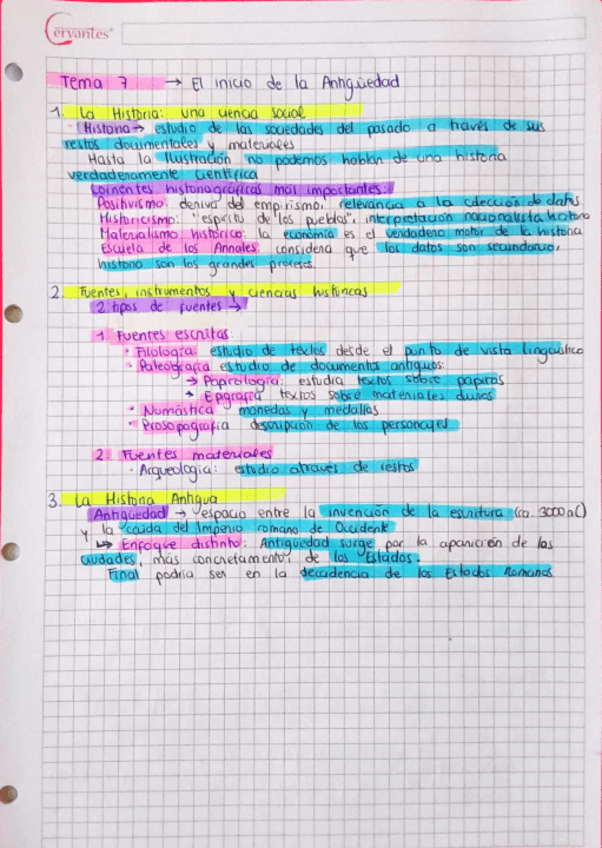 Cervantes
Tema 7 → El inicio de la Antigüedad
1. La Historia: una ciencia social
· Historia → estudio de las sociedades del pasado a través de sus
restos documentales y materiales
Hasta la Ilustración no podemos hablar de una historia
verdaderamente científica
Corrientes historiográficas más importantes:
Positivismo: deriva del empirismo, relevancia a la colección de datos
Historicismo: "espíritu de los pueblos", interpretación nacionalista
Materialismo histórico: la economía es el verdadero motor de la historia
Escuela de los Annales: considera que los datos son secundario,
historia son los grandes procesos.
2. Fuentes, instrumentos y ciencias históricas
2 tipos de fuentes →
1. Fuentes escritas:
· Filología: estudio de textos desde el punto de vista lingüístico
· Paleografía estudio de documentos antiguos:
→ Papirología: estudia textos sobre papiros
→ Epigrafía textos sobre materiales duros
· Numástica monedas y medallas
· Prosopografía descripción de los personajes
2. Fuentes materiales
· Arqueología: estudio através de restos
3. La Historia Antigua
Antigüedad → espacio entre la invención de la escritura (ca. 3000 a.C)
y la caída del Imperio romano de Occidente
↳ Enfoque distinto: Antigüedad surge por la aparición de las
ciudades, más concretamente, de los "Estados".
Final podría ser en la decadencia de los Estados Romanos